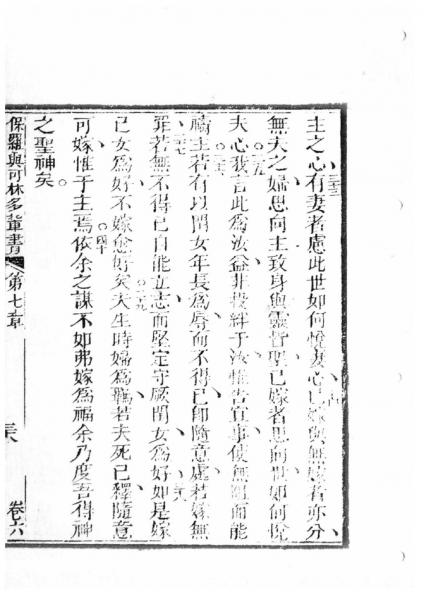 主之心有妻者慮此世如何悅妻心已嫁與無嫁者亦分
無夫之婦思向主致身與靈督聖已嫁者思向世如何悅
夫心我言此為汝益非投絆于汝惟告宜事使無阻而能
禱主若有以閨女年長為辱而不得已即隨意處若嫁無
罪若無不得已自能立志而堅定守厥閨女為好如是嫁
己女為好不嫁愈好矣夫生時婦為羈若夫死已釋隨意
可嫁惟于主焉依余之謀不如弗嫁為福余乃度吾得神
之聖神矣
保羅與可林多輩書 第七章 卷六